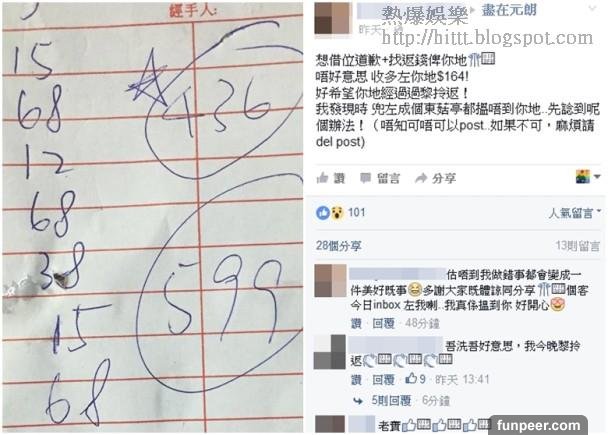 經手人:
15
68
12
68
38
15
68
436
599
盡在元朗
熱爆娛樂
http://hittt.blogspot.com
想借位道歉+找返錢俾你地
唔好意思 收多左你地$164!
好希望你地經過過黎拎返!
我發現時 兜左成個東菇亭都搵唔到你地..先諗到呢
個辦法! (唔知可唔可以post..如果不可,麻煩請
del post)
讚 留言 分享
101
人氣留言
28個分享
13則留言
估唔到我做錯事都會變成一
件美好既事 多謝大家既體諒同分享 個客
今日inbox 左我喇..我真係搵到你 好開心
讚 · 回覆 · 48分鐘
吾洗吾好意思,我今晚黎拎
返
讚 · 回覆 · 9 · 昨天 13:41
5則回覆 · 6分鐘
老實
funpeer.com